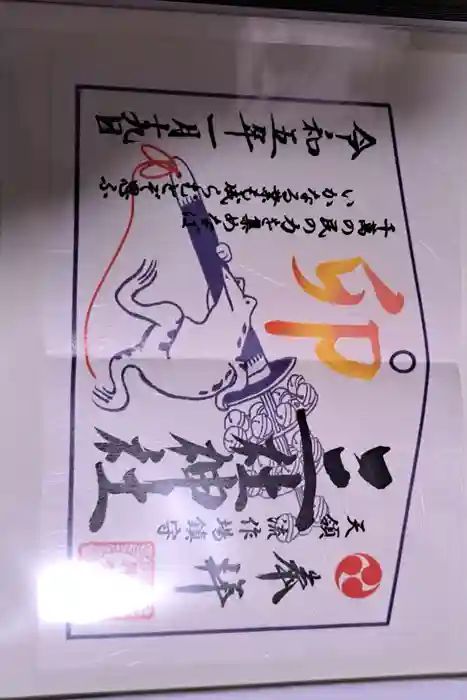 奉拝
天領
流作場鎮守
三社神社
卯
千萬の民の力を集めなば
いかなる業も成らむとぞ思ふ
令和五年一月十九日